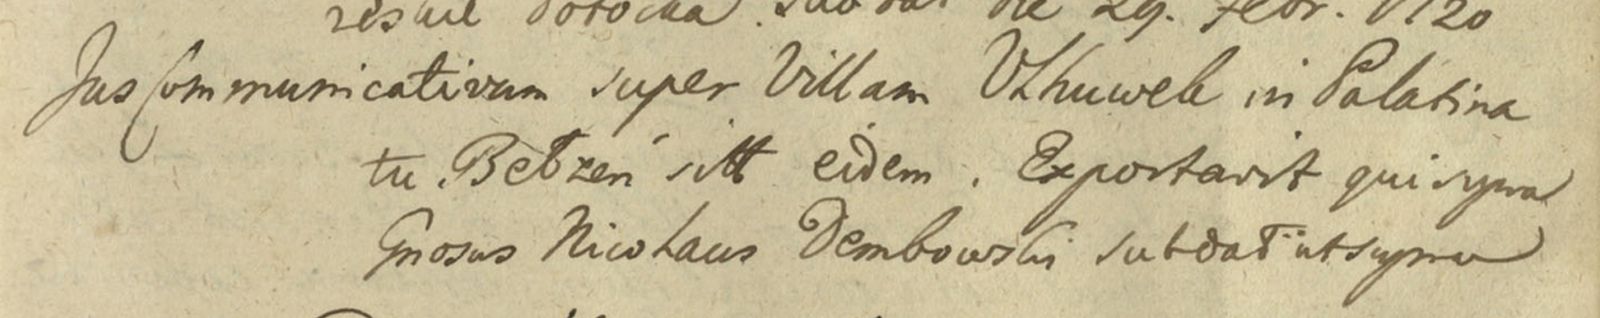 die 29. Febr. 1720
Jus Communicativum super Villam Uhuwek in Palatina
tu Betzen sitt eidem. Exportavit qui supra
Gnosus Nicolaus Dembowski sub dat ut supra